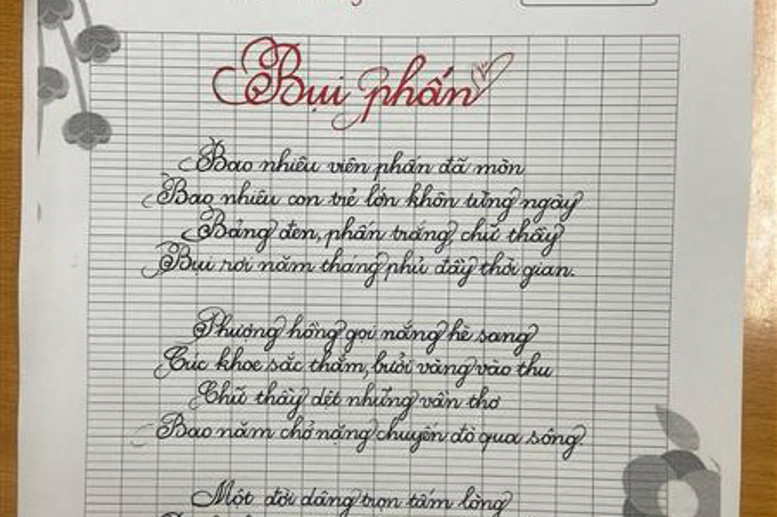 Bụi phấn
Bao nhiêu viên phấn đã mòn
Bao nhiêu con trẻ lớn khôn từng ngày
Bảng đen, phấn trắng, chữ thầy
Bụi rơi năm tháng phủ đầy thời gian.
Phượng hồng gọi nắng hè sang
Cúc khoe sắc thắm, bưởi vàng vào thu
Chữ thầy dệt những vần thơ
Bao năm chở nặng chuyến đò qua sông.
Một đời dâng trọn tấm lòng